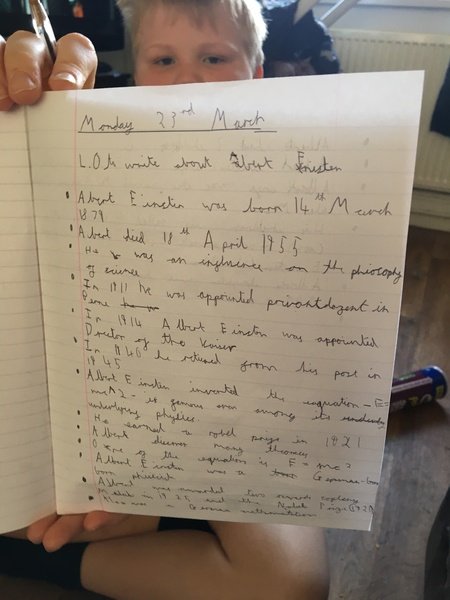 Monday 23rd March
L.O to write about Albert Einsten
Abert Einsten was born 14th March
1879
Abert died 18th April 1955
He was an influence on the phiosophy
of science
In 1911 he was appointed privontdozent in
Berne
In 1914 Albert Einsten was appointed
Director of the Kaiser
In 1940 he retured from his post in
1945
Albert Einsten invented the equation - E=
mc^2 - is famous even among its
underlying physics.
He earned a nobel prize in 1921
Albert discover many theories
One of the equation is E=mc2
Albert Einsten was a German-born
born physicist
Albert was awarded two awards copley
Medal in 1925 and the Nobel Prize (1921)
Also was a German mathematian